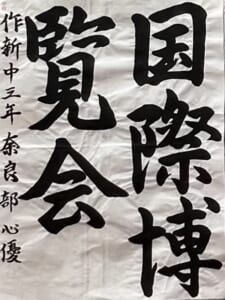 国際博
覧会
作新中三年 奈良部心優